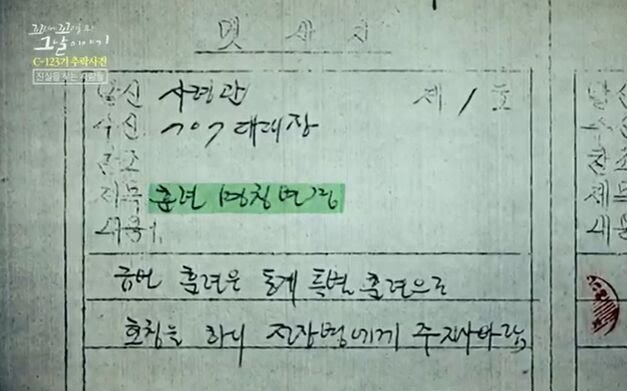 꼬리에 꼬리를 무는
그날 이야기
C-123기 추락사건
진실을 찾는 사람들
멧 세 지
발신 사령관 제 1 호
수신 707대대장
참조
제목 훈련 명칭 변경
내용 1.
금번 훈련은 동계 특별 훈련으로
호칭을 하니 전장병에게 주지시바람,
발신
수신
참조
제목
내용